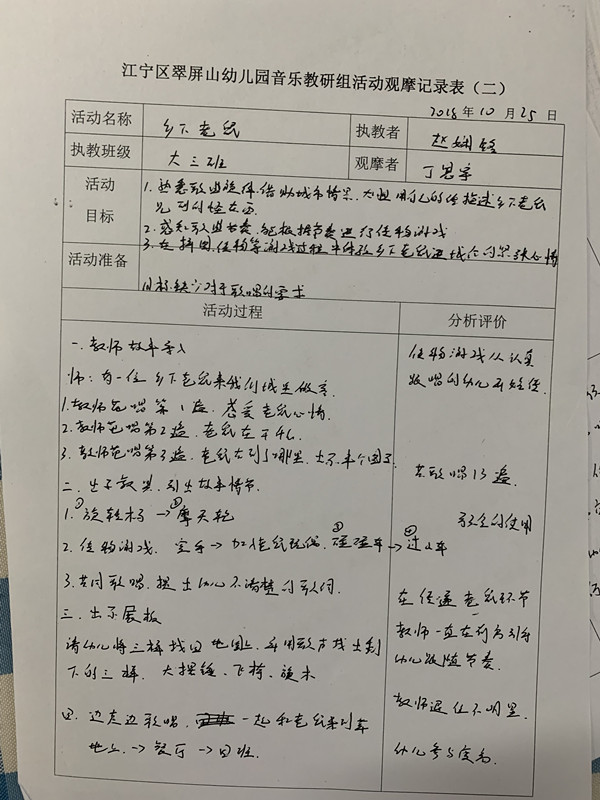 江宁区翠屏山幼儿园音乐教研组活动观摩记录表（二）
2018年10月25日
活动名称 乡下老鼠 执教者
执教班级 大三班 观摩者
活动目标
1.熟悉歌曲旋律,借助城市情景,大胆用自己的
2.感知歌曲节奏,能根据节奏进行传物游戏
3.在拼图,传物等游戏过程中体验乡下老鼠进城后的紧张心情
活动准备
目标缺少对于歌唱的要求
活动过程 分析评价
一.教师故事导入
师:有一位乡下老鼠来我们城里做客
1.教师范唱第1遍.感受老鼠心情.
2.教师范唱第2遍.老鼠在干什么.
3.教师范唱第3遍.老鼠去到了哪里.出示半个图
二.出示教具.引出故事情节.
1.①旋转木马→②摩天轮
2.传物游戏. 空手→加老鼠玩偶.③碰碰车→④过山车
3.共同歌唱.提出幼儿不清楚的歌词.
三.出示展板
请幼儿将三样找回地图上,并用歌声找出剩
下的三样. 大摆锤、飞椅、旋木
四.边走边歌唱. 一起和老鼠来到草
地上.→餐厅→回班.
传物游戏从认真
跟唱的幼儿开始传
共歌唱13遍.
的使用
在传递老鼠环节
教师一直在
幼儿跟随节奏.
教师退位不明显.
幼儿参与度高.